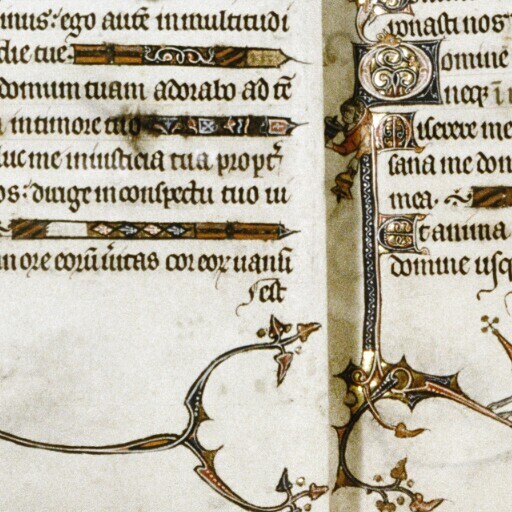 inus: ego autē in multitudi
die tue:
domum tuam adorabo ad tē
in timore tuo
duc me in iusticia tua propt
os: dirige in conspectu tuo ui
in ore eorū ūitas cor eoꝝ uanū
est
iponasti nos
Domine
neqꝫ
Miserere me
sana me dom
mea.
Et anima
domine usq